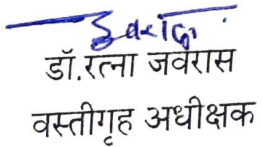 डॉ.रत्ना जवरास
वस्तीगृह अधीक्षक